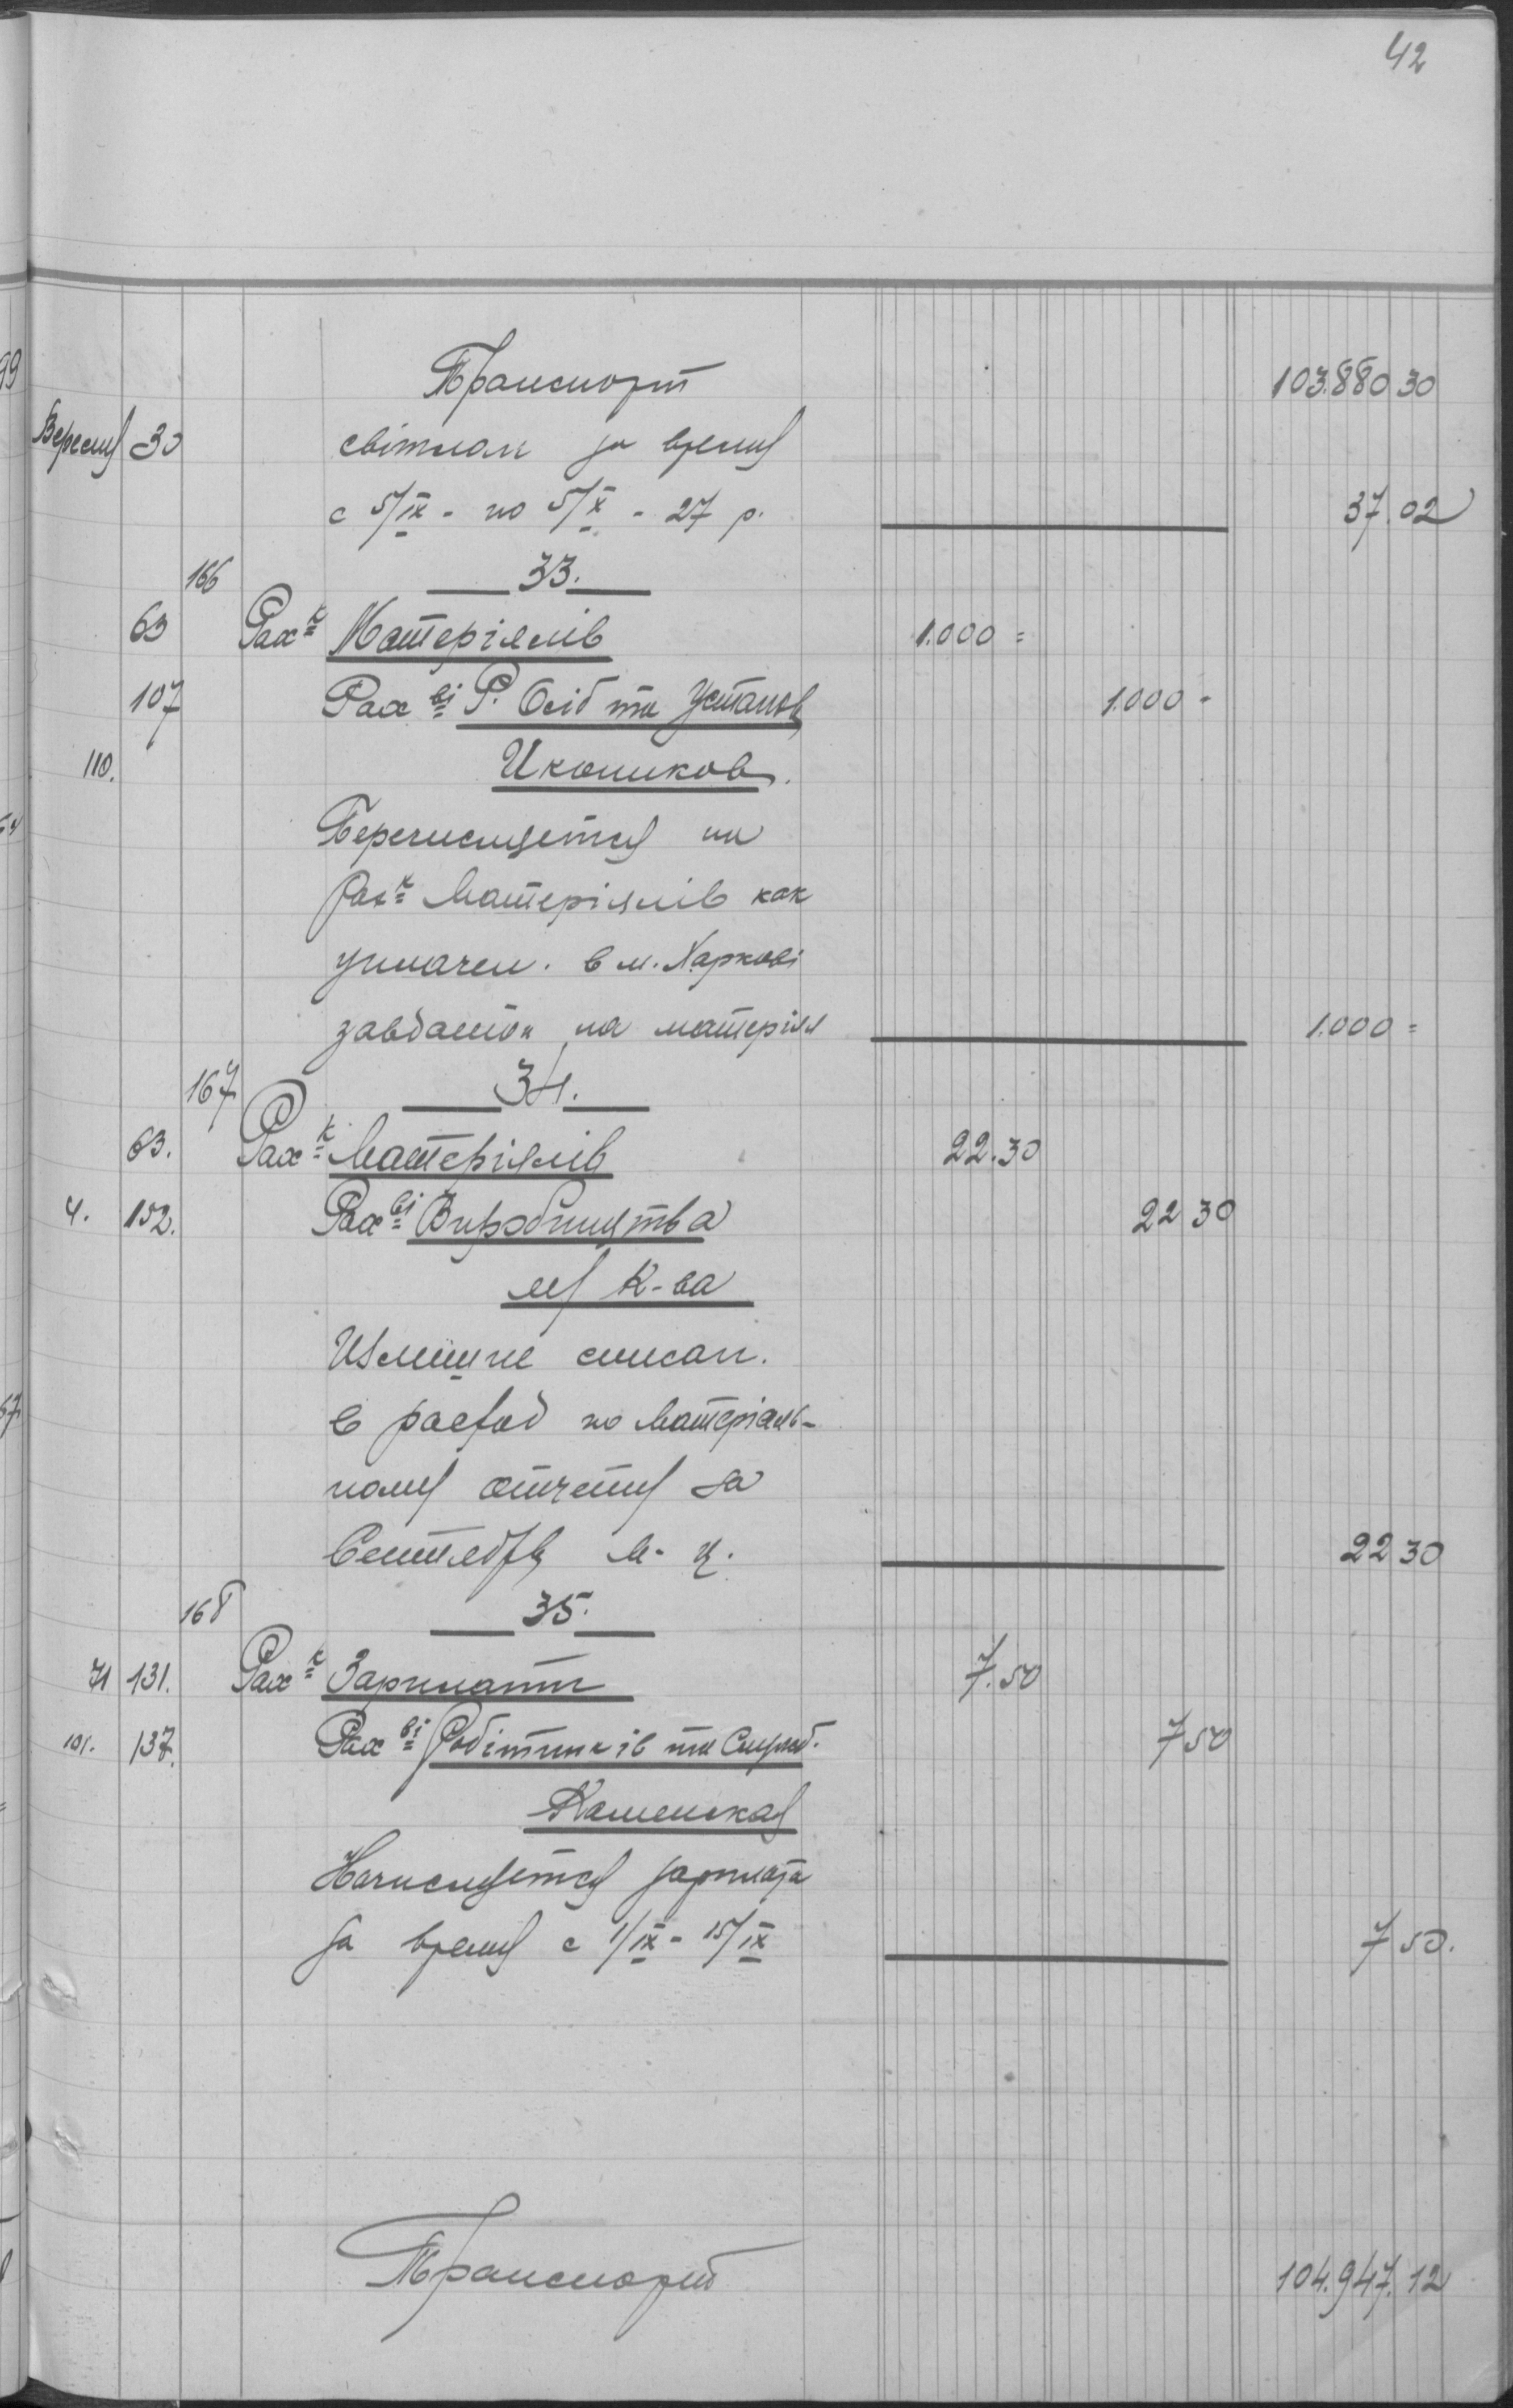 42
Транспорт 103.880 30
Вересня 30 світлом за время
с 5/IX - по 5/X - 27 р. 37.02
166 33.
63 Рах-к Матеріялів 1.000 =
107 Рах-ві Р. Осіб та Установ 1.000 -
110. Иконников.
Перечисляется на
Рах-к Матеріялів как
уплачен. в м. Харкові
завдаток на матеріял 1.000 =
167 34.
63. Рах-к Матеріялів 22.30
4. 152. Рах-ві Виробництва 22 30
К-ва
Излишне списан.
в расход по Матеріаль-
ному отчету за
Сентябрь м-ц. 22 30
168 35.
71 131. Рах-к Зарплати 7.50
101. 137. Рах-ві Робітників та Служб. 7 50
Каменская
Начисляется зарплата
за время с 1/IX - 15/IX 7 50.
Транспорт 104.947.12